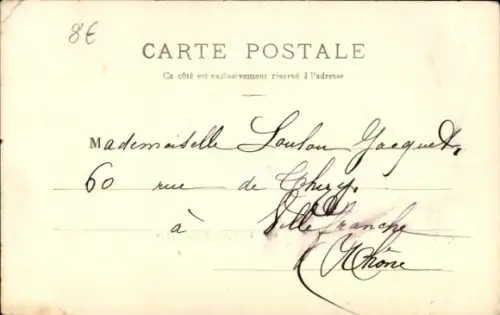 8€
CARTE POSTALE
Ce côté est exclusivement réservé à l'adresse
Mademoiselle Loulou Jacquet,
60 rue de Thizy,
à Villefranche
Rhône